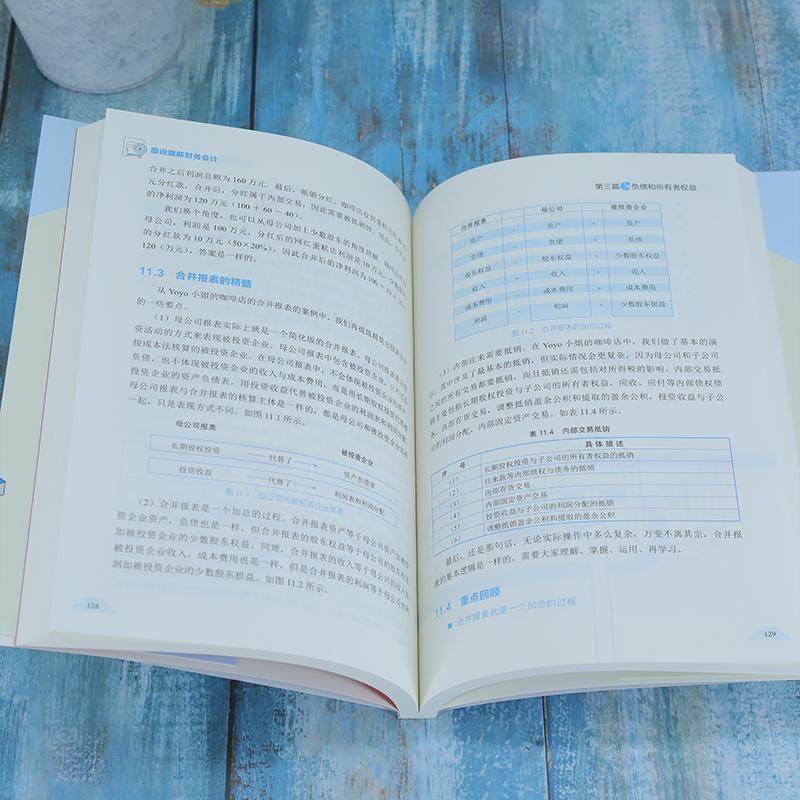 图说趣解财务会计
合并之后利润总额为160万元。最后，抵销分红，咖啡店收到蛋糕店
元分红款，合并后，分红属于内部交易，因此需要被抵销掉，因此，
的净利润为120万元（100＋60－40）。
我们换个角度，也可以从母公司加上少数股东的角度理解，咖啡店
母公司，利润是100万元，分红后的网红蛋糕店利润是10万元，少数股东
的分红款为10万元（50×20%），因此合并后的净利润为100＋10＋10＝
120（万元），答案是一样的。
11.3 合并报表的精髓
从Yoyo小姐的咖啡店的合并报表的案例中，我们再提炼精简出报表合并
的一些要点。
（1）母公司报表实际上就是一个简化版的合并报表，母公司报表
资活动的方式来表现被投资企业。母公司报表中包含被投资企业，只不过是
按成本法核算的被投资企业。在母公司报表中，不会体现被投资企业的资产
负债，也不体现被投资企业的收入与成本费用，而是用长期股权投资代替被
投资企业的资产负债表，用投资收益代替被投资企业的利润表和利润分配
母公司报表与合并报表的核算主体是一样的，都是母公司和被投资企业加在
一起，只是表现方式不同。如图11.1所示。
母公司报表 被投资企业
长期股权投资 代替了 资产负债表
投资收益 代替了 利润表和利润分配
图11.1 母公司与被投资企业关系
（2）合并报表是一个加总的过程。合并报表资产等于母公司资产加被投
资企业资产，负债也是一样，但合并报表的股东权益等于母公司的股东权益
加被投资企业的少数股东权益。同理，合并报表的收入等于母公司的收入加
被投资企业收入，成本费用也是一样，但是合并报表的利润等于母公司的利
润加被投资企业的少数股东损益。如图11.2所示。
128
第三篇 负债和所有者权益
合并报表 母公司 被投资企业
资产 = 资产 + 资产
负债 = 负债 + 负债
股东权益 = 股东权益 + 少数股东权益
收入 = 收入 + 收入
成本费用 = 成本费用 + 成本费用
利润 = 利润 + 少数股东损益
图11.2 合并报表的加总过程
（3）内部往来需要抵销。在Yoyo小姐的咖啡店中，我们做了基本的演
示，其中涉及了最基本的抵销，但实际情况会更复杂，因为母公司和子公司
之间的所有交易都要抵销，而且抵销还需包括对所得税的影响。内部交易抵
销主要包括长期股权投资与子公司的所有者权益，应收、应付等内部债权债
务，内部存货交易，调整抵销盈余公积和提取的盈余公积，投资收益与子公
司的利润分配，内部固定资产交易。如表11.4所示。
表11.4 内部交易抵销
序 号 具体描述
（1） 长期股权投资与子公司的所有者权益的抵销
（2） 往来款等内部债权与债务的抵销
（3） 内部存货交易
（4） 内部固定资产交易
（5） 投资收益与子公司的利润分配的抵销
（6） 调整抵销盈余公积和提取的盈余公积
最后，还是那句话，无论实际操作中多么复杂，万变不离其宗，合并报
表的基本逻辑是一样的，需要大家理解、掌握、运用、再学习。
11.4 重点回顾
■ 合并报表就是一个加总的过程
129